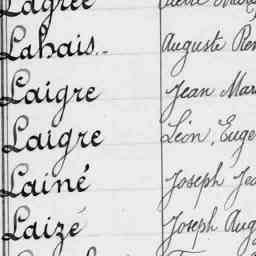 Lahais Auguste
Laigre Jean
Laigre Léon, Euge
Lainé Joseph Jea
Laizé Joseph Aug